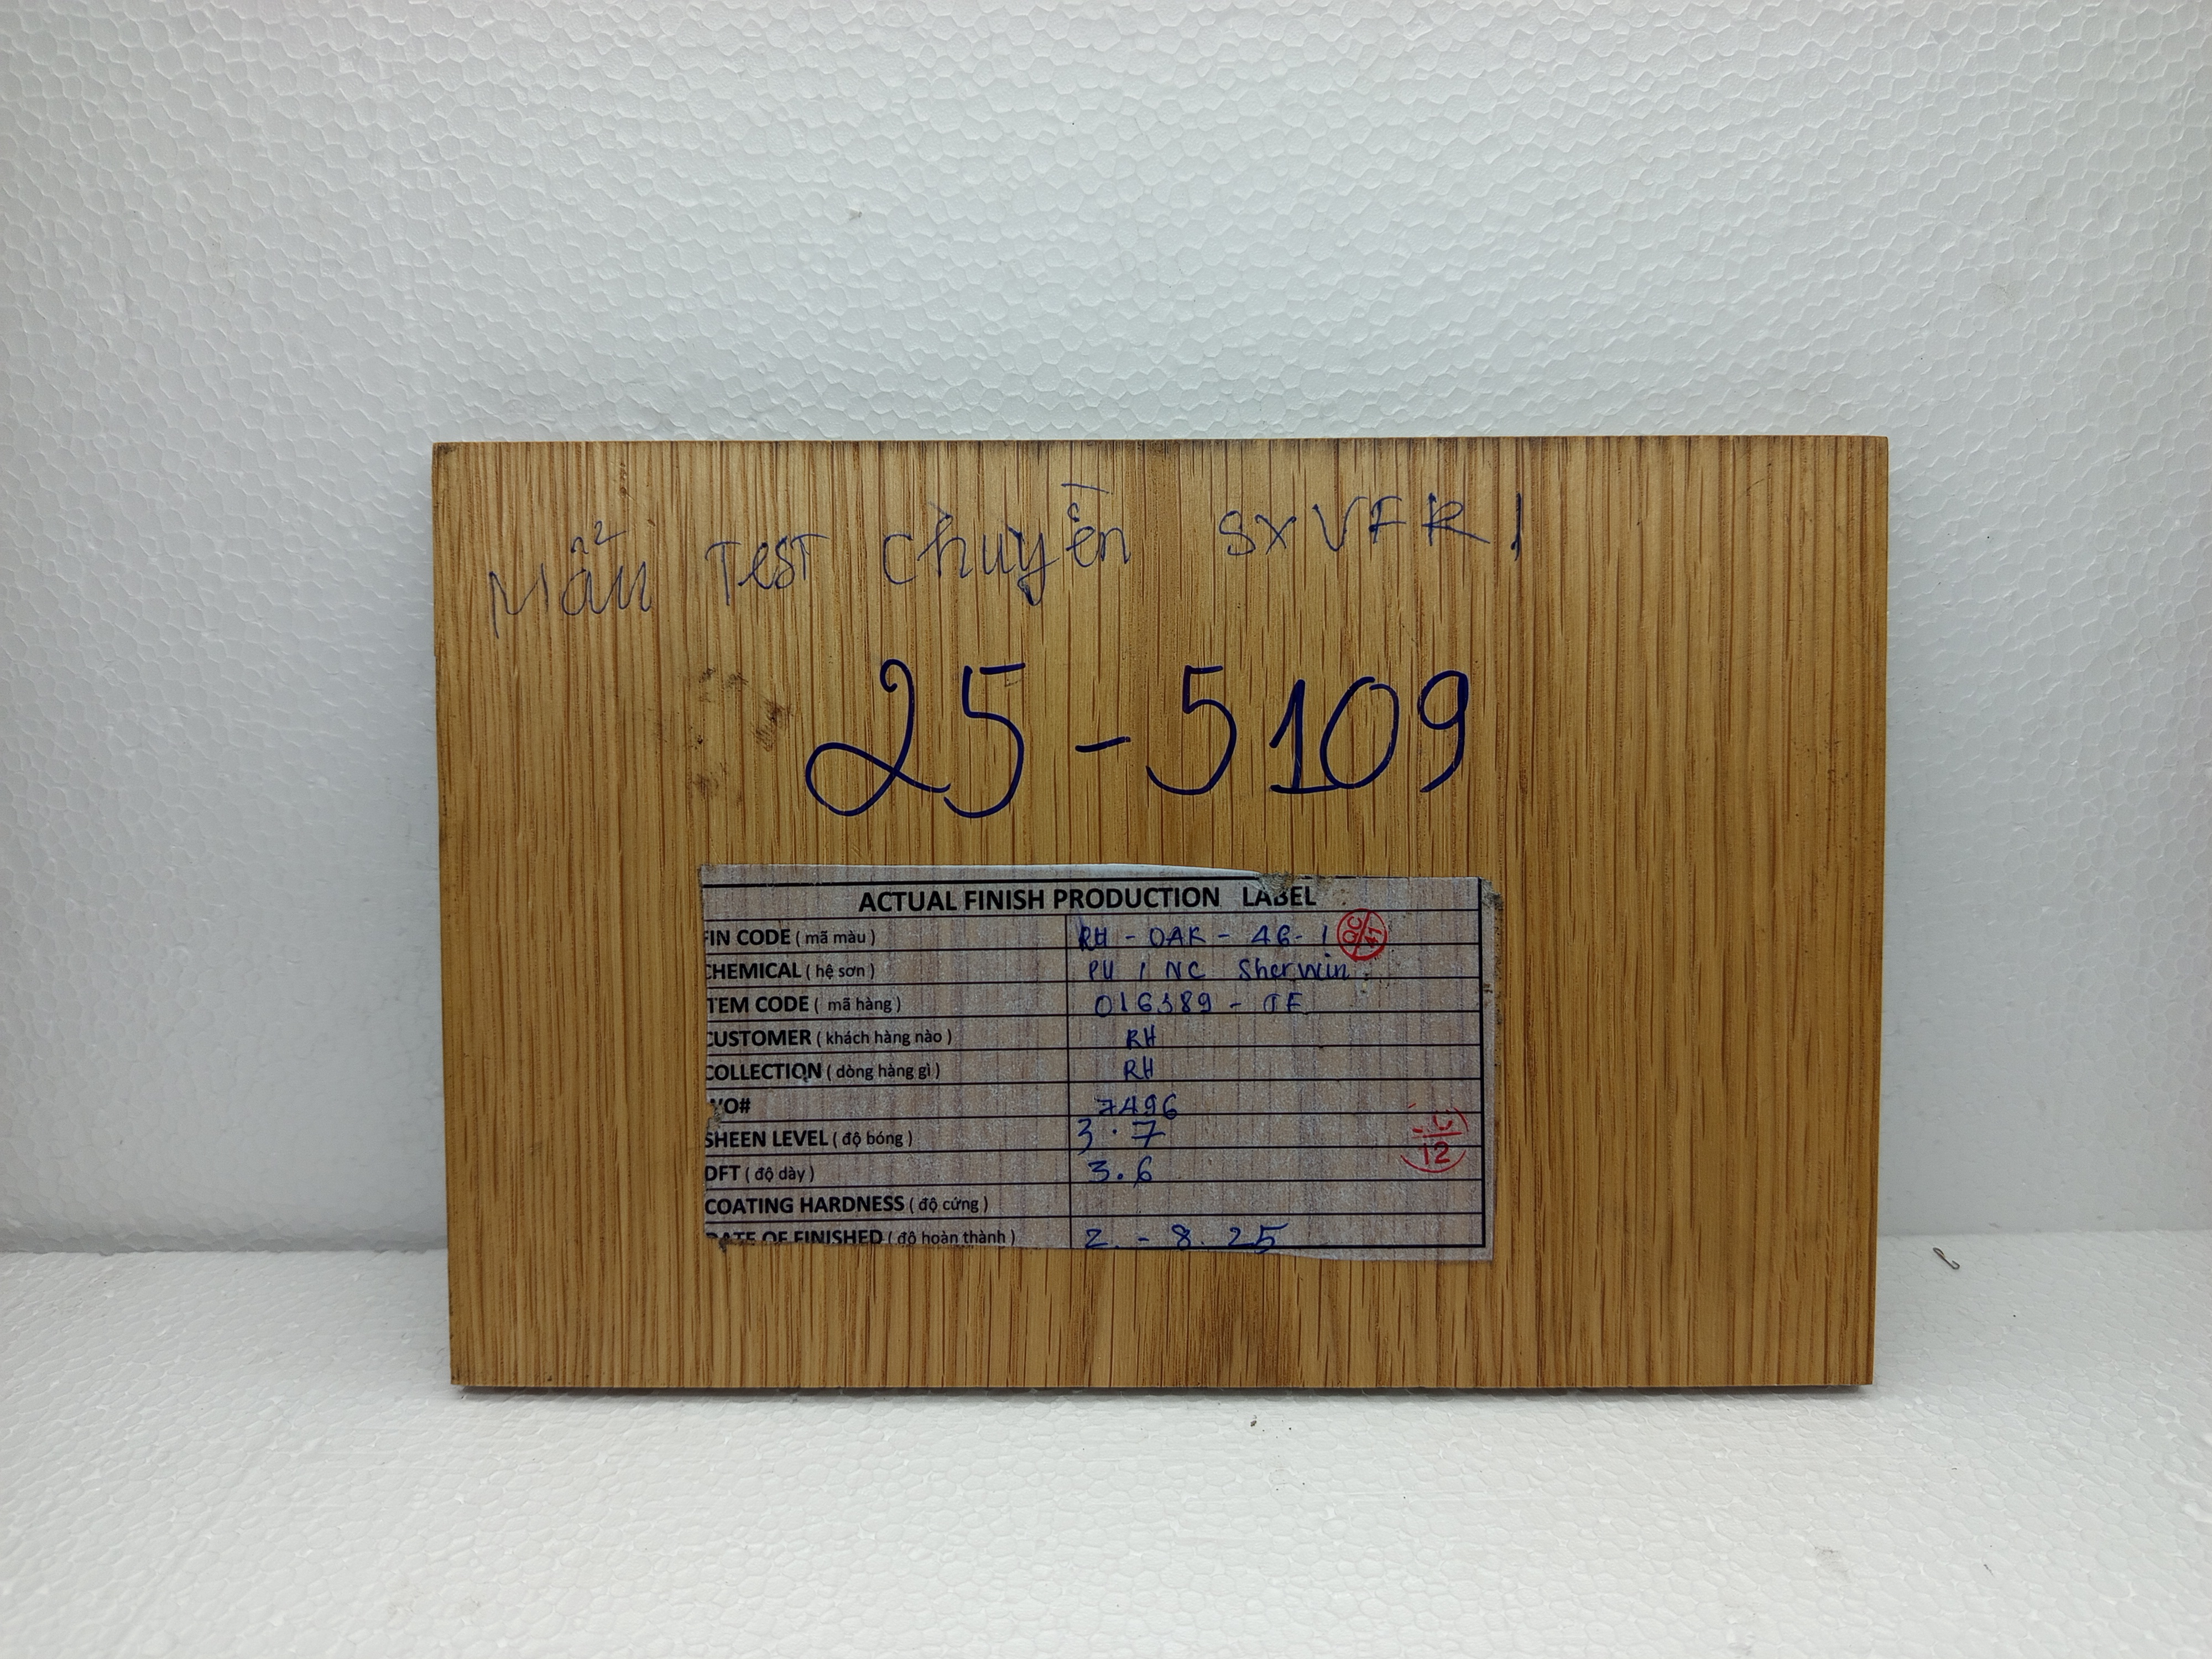 Mẫu Test chuyền SX VFR 1
25-5109
ACTUAL FINISH PRODUCTION LABEL
FIN CODE ( mã màu ) RH - OAK - 46- 1 QC 41
CHEMICAL ( hệ sơn ) PU / NC Sherwin
ITEM CODE ( mã hàng ) 016389 -
CUSTOMER ( khách hàng nào ) RH
COLLECTION ( dòng hàng gì ) RH
WO# 7496
SHEEN LEVEL ( độ bóng ) 3.7
DFT ( độ dày ) 3.6 12
COATING HARDNESS ( độ cứng )
DATE OF FINISHED ( độ hoàn thành ) 2 - 8. 25